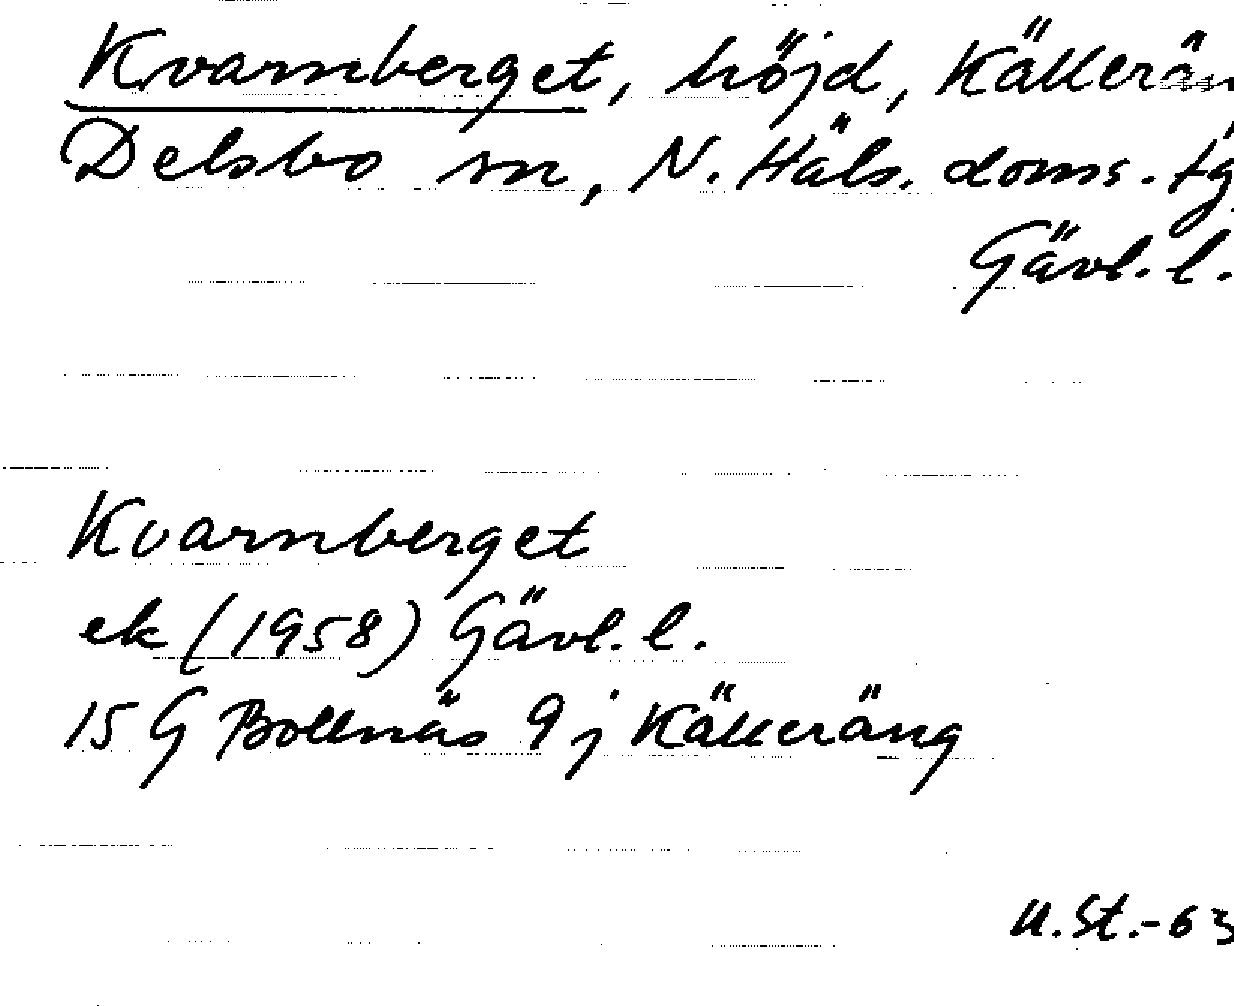 Kvarnberget, höjd, Källerän
Delsbo sn, N. Häls. doms. tg
Gävl. l.
Kvarnberget
ek (1958) Gävl. l.
15 G Bollnäs 9 j Källeräng
U. St.-63